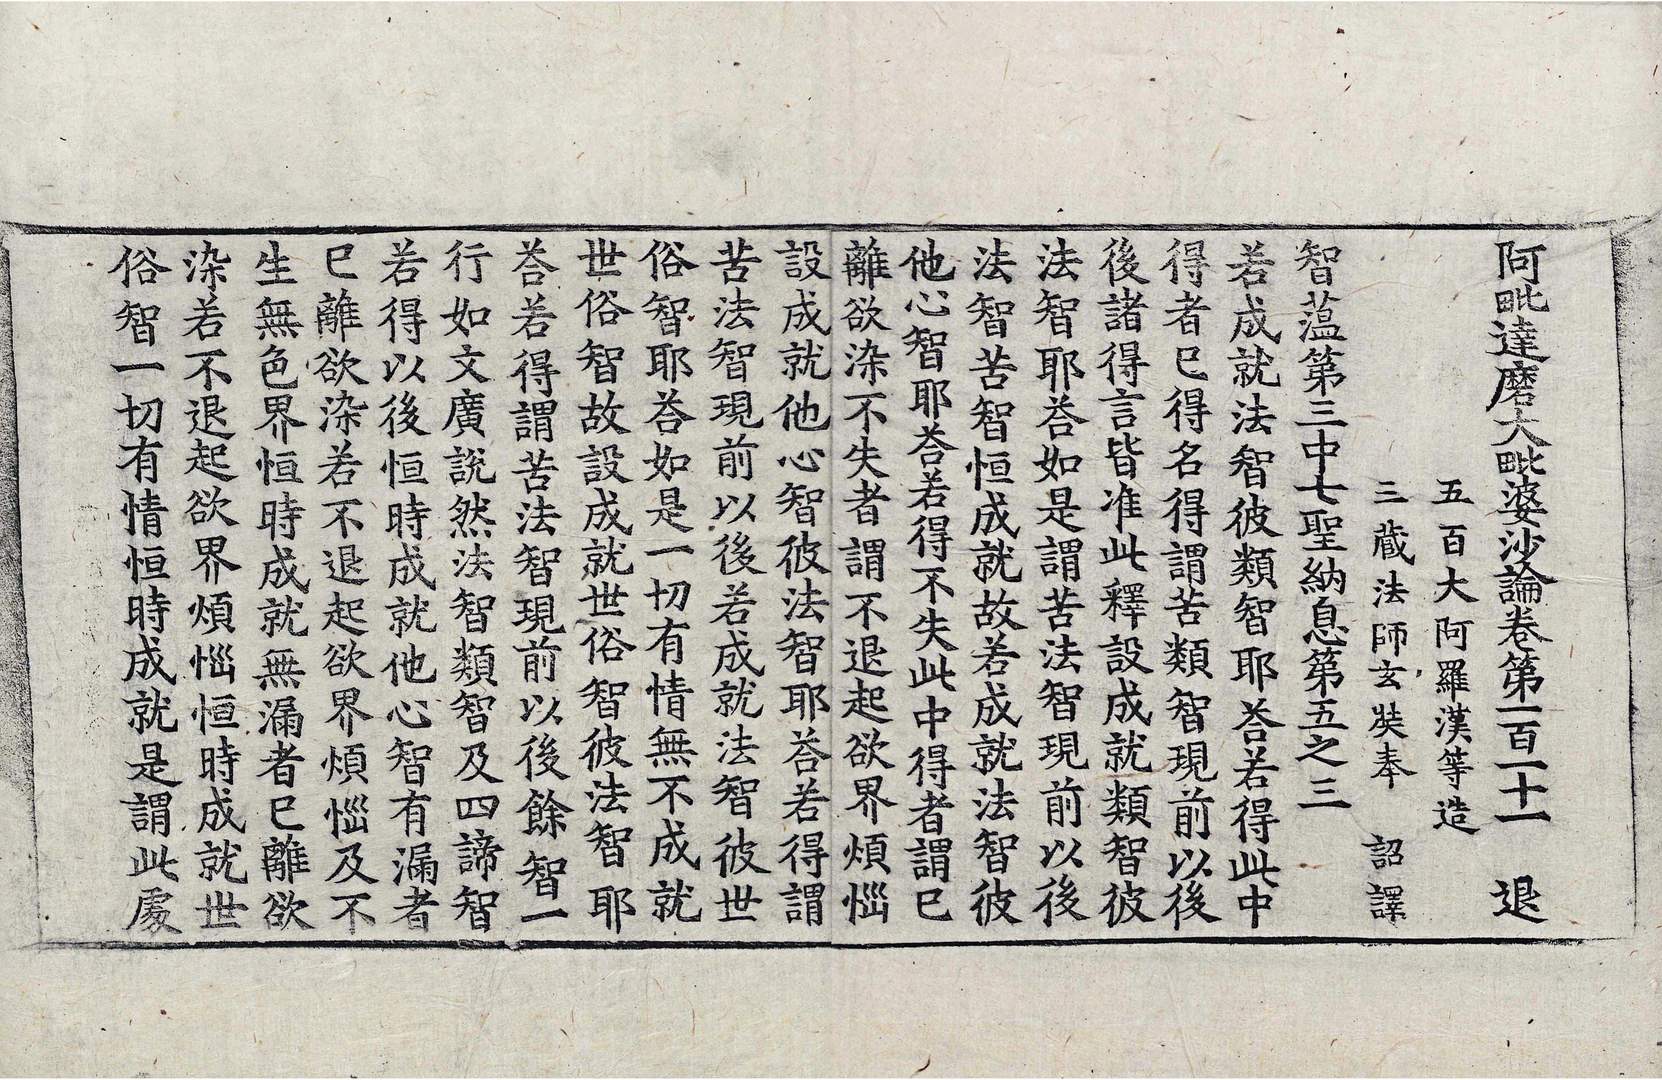 阿毗達磨大毗婆沙論卷第一百一十一　退
五百大阿羅漢等造
三藏法師玄奘奉　詔譯
智蒀第三中七聖納息第五之三
若成就法智彼類智耶荅若得此中
得者已得名得謂苦類智現前以後
後諸得言皆准此釋設成就類智彼
法智耶荅如是謂苦法智現前以後
法智苦智恒成就故若成就法智彼
他心智耶荅若得不失此中得者謂已
離欲染不失者謂不退起欲界煩惱
設成就他心智彼法智耶荅若得謂
苦法智現前以後若成就法智彼世
俗智耶荅如是一切有情無不成就
世俗智故設成就世俗智彼法智耶
荅若得謂苦法智現前以後餘智一
行如文廣說然法智類智及四諦智
若得以後恒時成就他心智有漏者
已離欲染若不退起欲界煩惱及不
生無色界恒時成就無漏者已離欲
染若不退起欲界煩惱恒時成就世
俗智一切有情恒時成就是謂此處